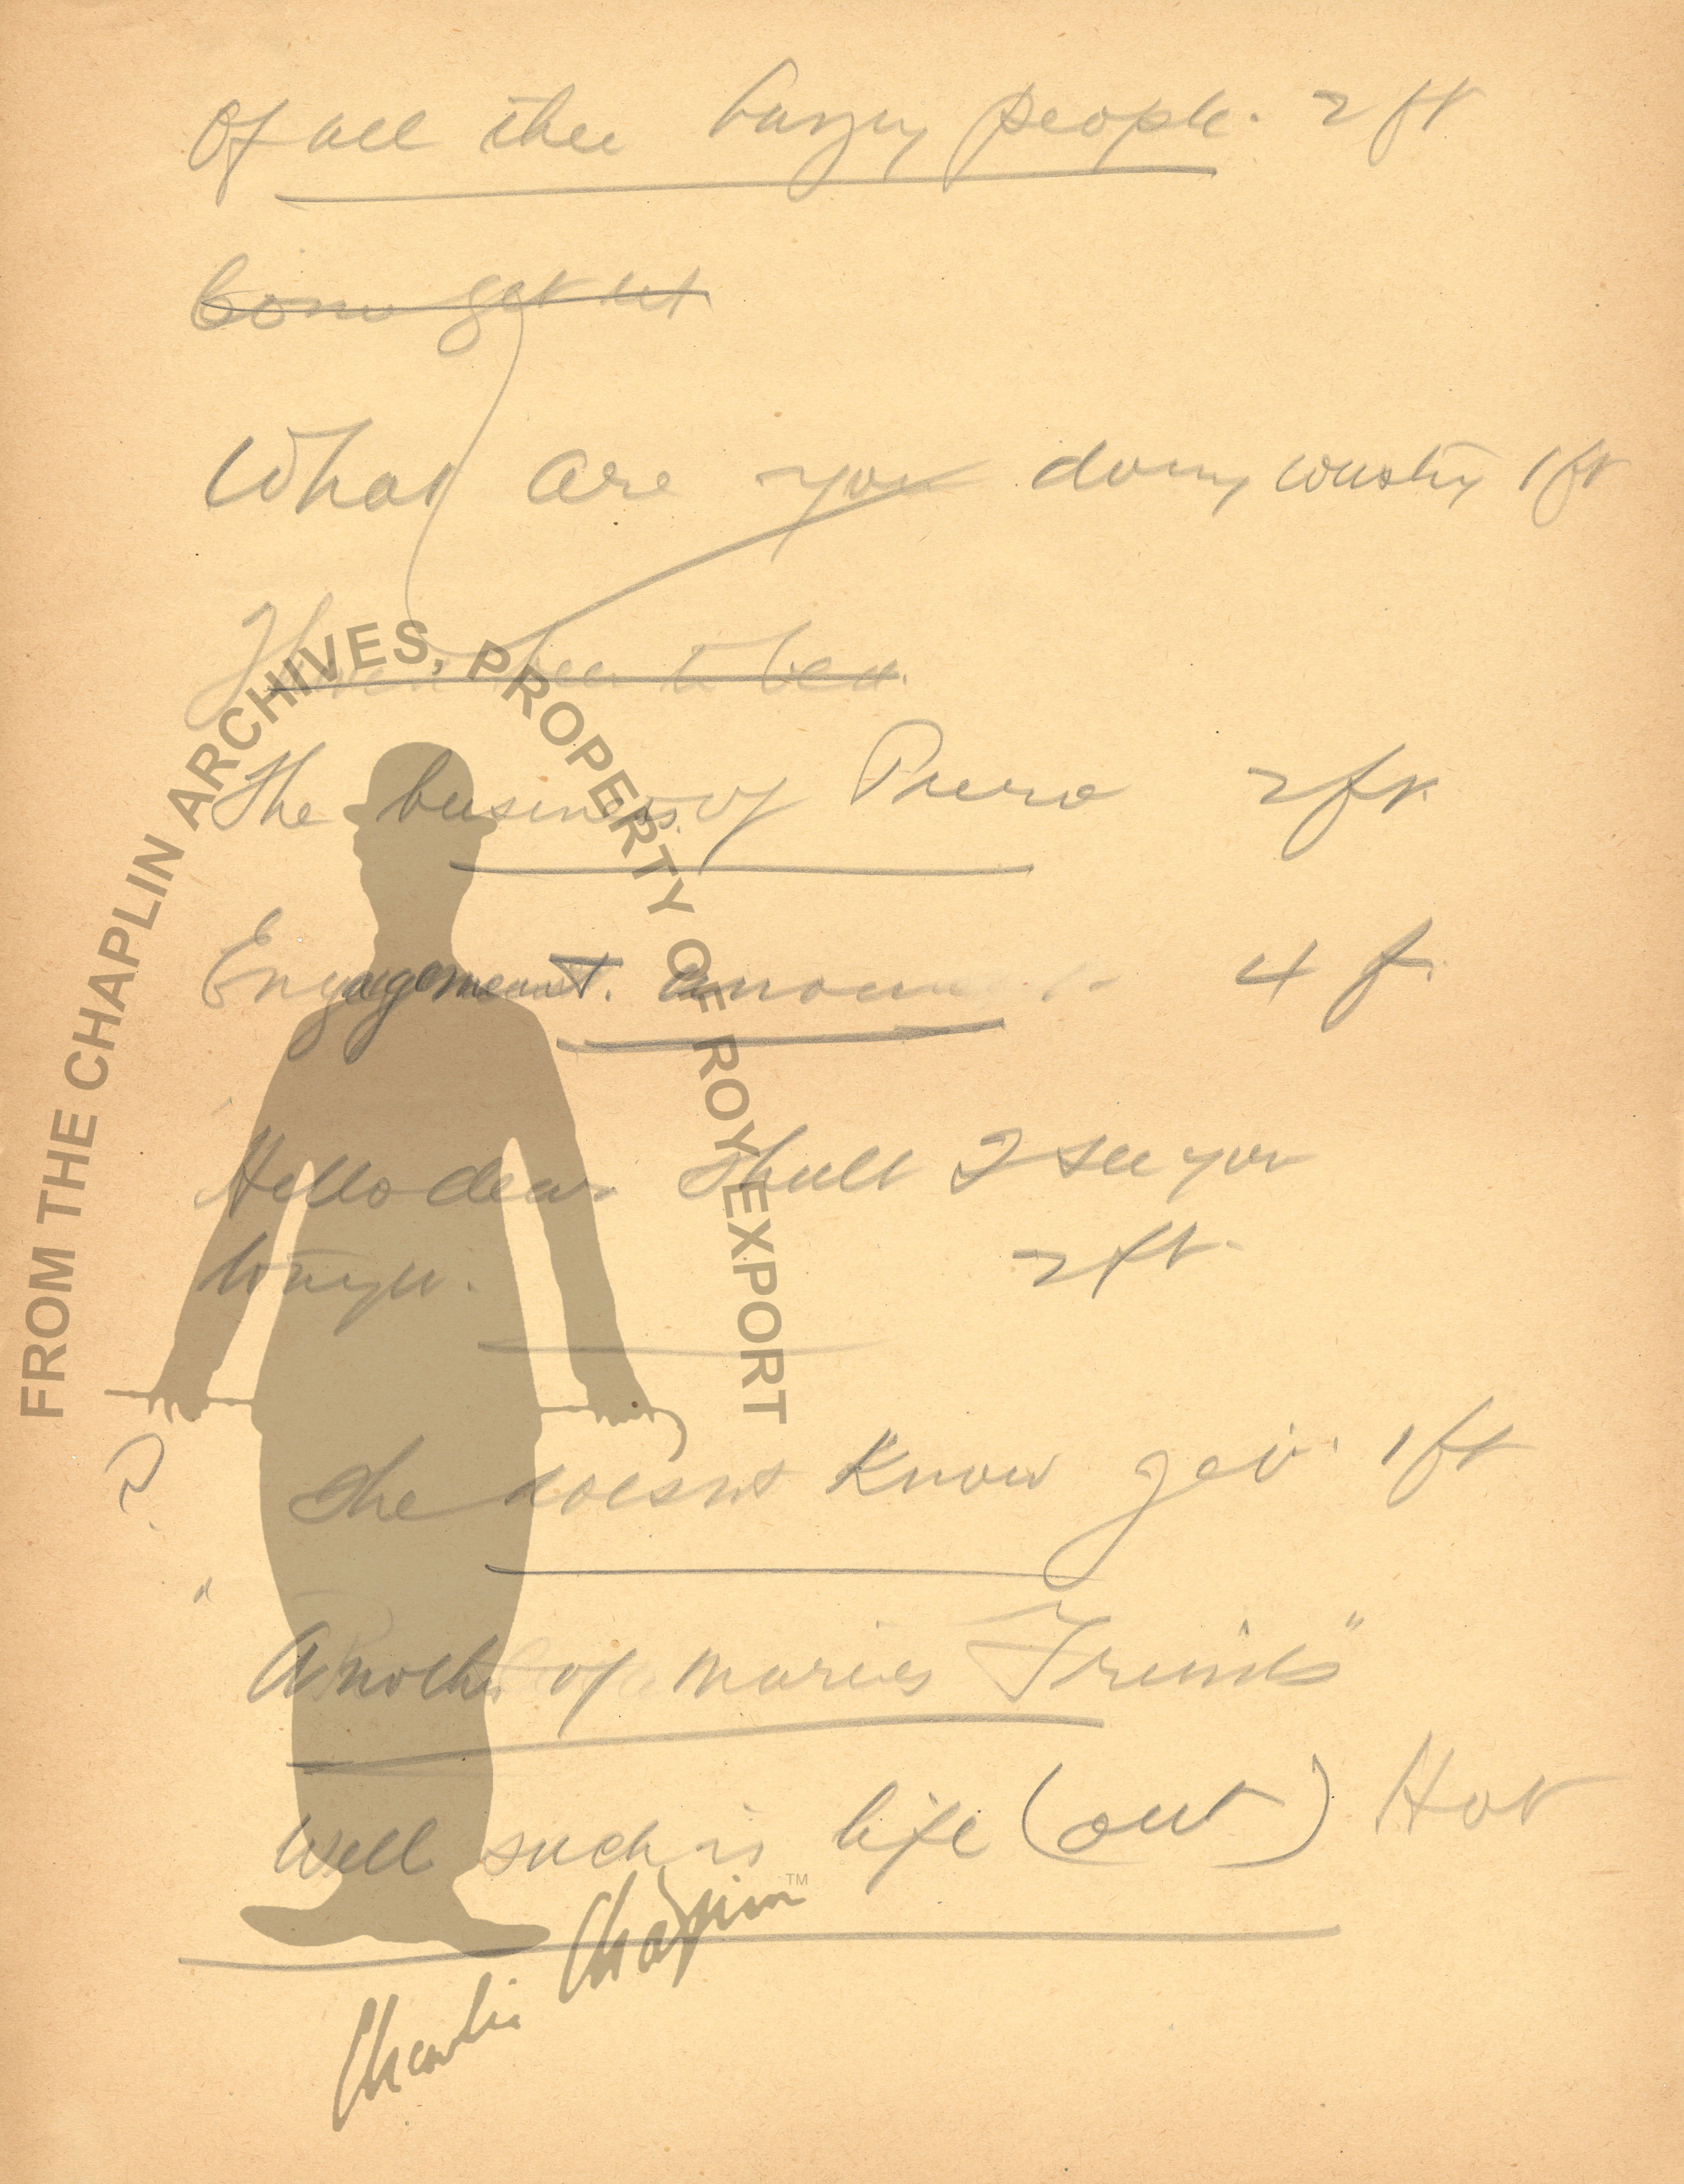 Of all the lazy people. 2 ft
Come get
What are you doing 1 ft
The business of Pierre 2 ft.
Engagement. announ 4 f.
Hello dear shall I see you
2 ft.
She doesnt know 1 ft
"Another of Maries Friends"
Well such is life (out) Hot
FROM THE CHAPLIN ARCHIVES, PROPERTY OF ROY EXPORT
Charlie Chaplin™